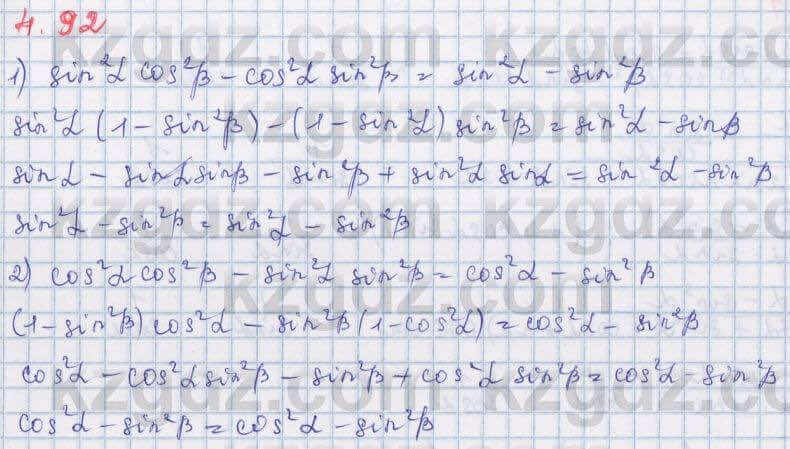 4.92
1) sin²α cos²β - cos²α sin²β = sin²α - sin²β
sin²α (1 - sin²β) - (1 - sin²α) sin²β = sin²α - sinβ
sinα - sinα sinβ - sin²β + sin²α sinα = sin²α - sin²β
sin²α - sin²β = sin²α - sin²β
2) cos²α cos²β - sin²α sin²β = cos²α - sin²β
(1 - sin²β) cos²α - sin²β (1 - cos²α) = cos²α - sin²β
cos²α - cos²α sin²β - sin²β + cos²α sin²β = cos²α - sin²β
cos²α - sin²β = cos²α - sin²β
kzgdz.com kzgdz.com
kzgdz.com
kzgdz.com kzgdz.com
kzgdz.com
kzgdz.com kzgdz.com
kzgdz.com